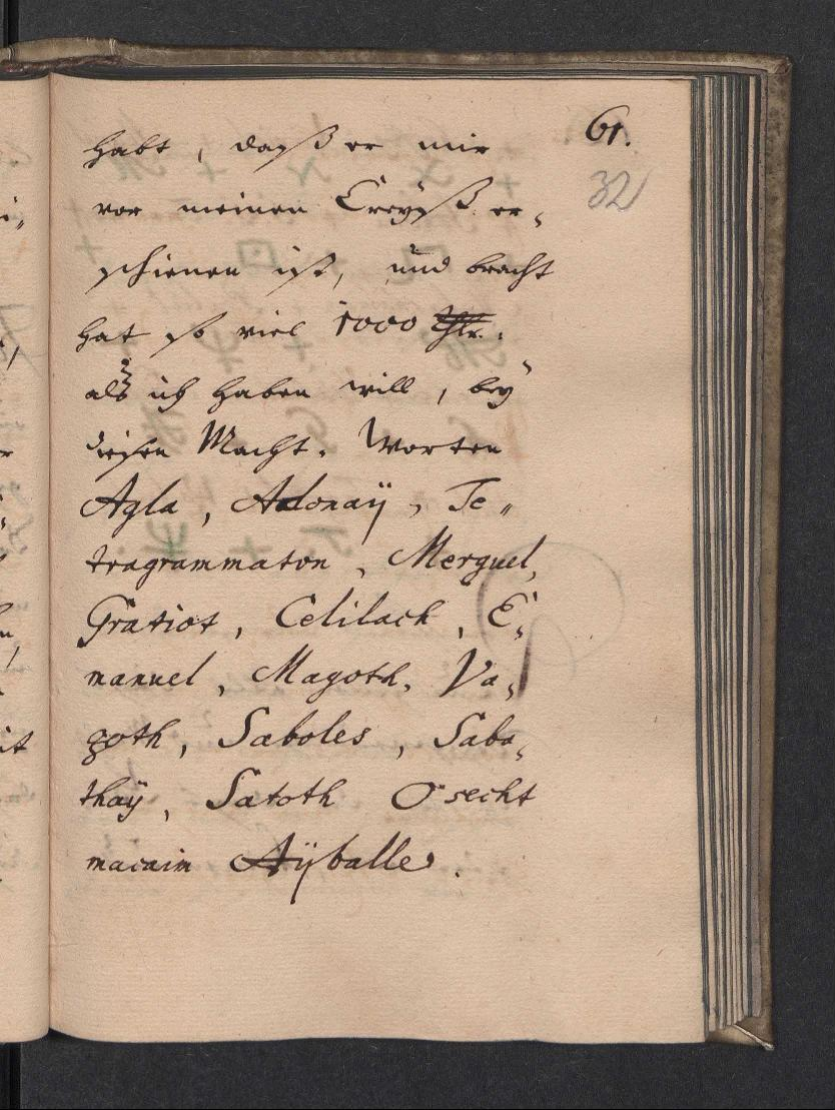 61.
32
habt, daß er mir
vor meinen Creyß er-
schienen ist, und bracht
hat so viel 1000 Thlr.
alß ich haben will, bey
diesen Macht-Worten
Agla, Adonaÿ, Te-
tragrammaton, Merguel,
Gratiot, Celilach, E-
manuel, Magoth, Va-
goth, Saboles, Saba-
thaÿ, Satoth Osecht
macaim Aÿballe.